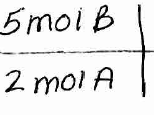 5molB
2molA